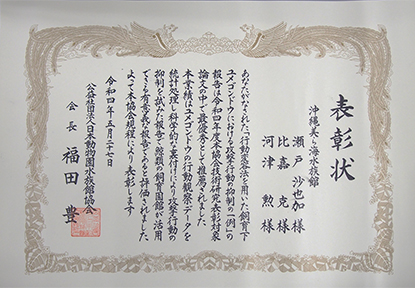 表彰状
沖縄美ら海水族館
瀬戸 沙也加 様
比嘉 克 様
河津 勲 様
あなたがなされた「行動変容法を用いた飼育下
ユメゴンドウにおける攻撃行動の抑制の一例」の
報告は令和四年度本協会技術研究表彰対象
論文の中で最優秀として推薦されました
本業績はユメゴンドウの行動観察データを
統計処理し科学的な裏付けにより攻撃行動の
抑制を試みた報告で鯨類の飼育園館が活用
できる有意義な報告であると評価されました
よって本協会規程により表彰します
令和四年五月二十七日
公益社団法人日本動物園水族館協会
会長 福田 豊